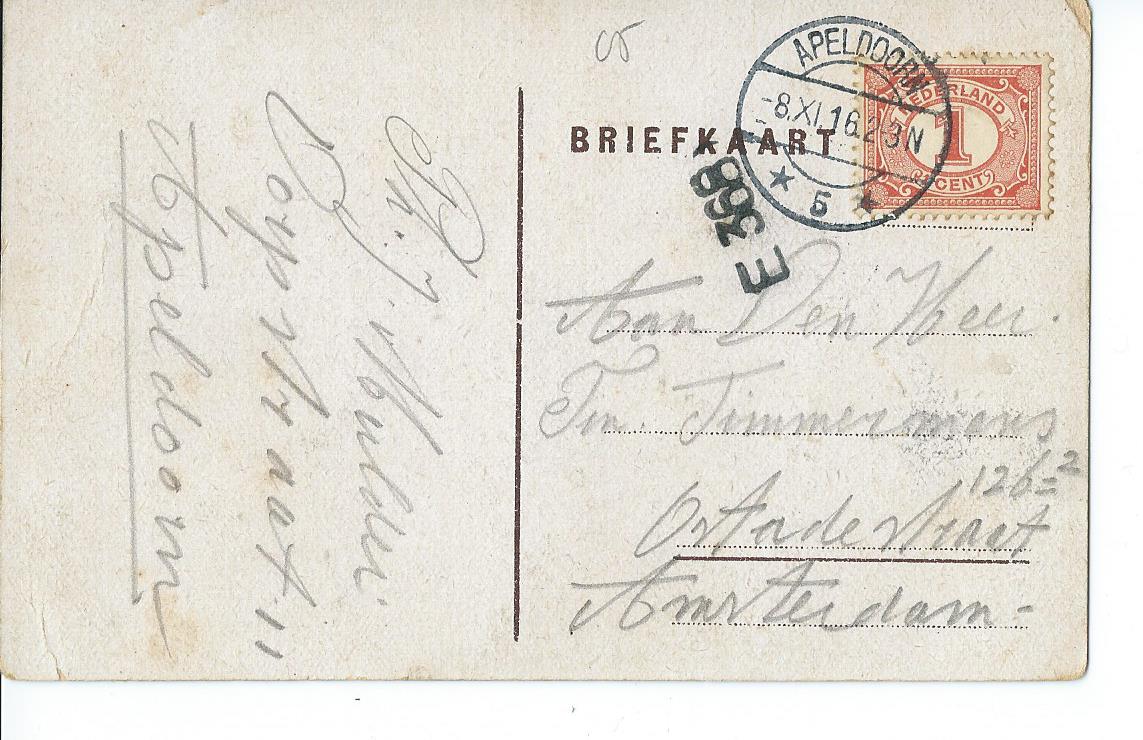 BRIEFKAART
APELDOORN
-8.XI.16.2-3N
5
NEDERLAND
1
CENT
E 368
Aan Den Heer.
Tin. Timmermans
126=2
Ostadestraat
Amsterdam=
Th. J. Mulder
straat 11
Apeldoorn